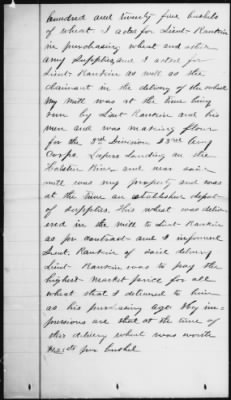 hundred and twenty five bushels
of wheat. I acted for Lieut. Rankin
in purchasing wheat and other
army supplies and I acted for
Lieut. Rankin as well as the
claimant in the delivery of the wheat
My mill was at the time being
run by Lieut Rankin and his
men and was making flour
for the 3rd Division 23rd Army
Corps. Landing on the
Holston River and near said
mill was my property and was
at the time an established depot
of supplies. This wheat was deliv-
ered in the mill to Lieut Rankin
as per contract and I informed
Lieut. Rankin of said delivery
Lieut. Rankin was to pay the
highest market price for all
wheat that I delivered to him
as his purchasing agt. My im-
pressions are that at the time of
this delivery wheat was worth
per bushel